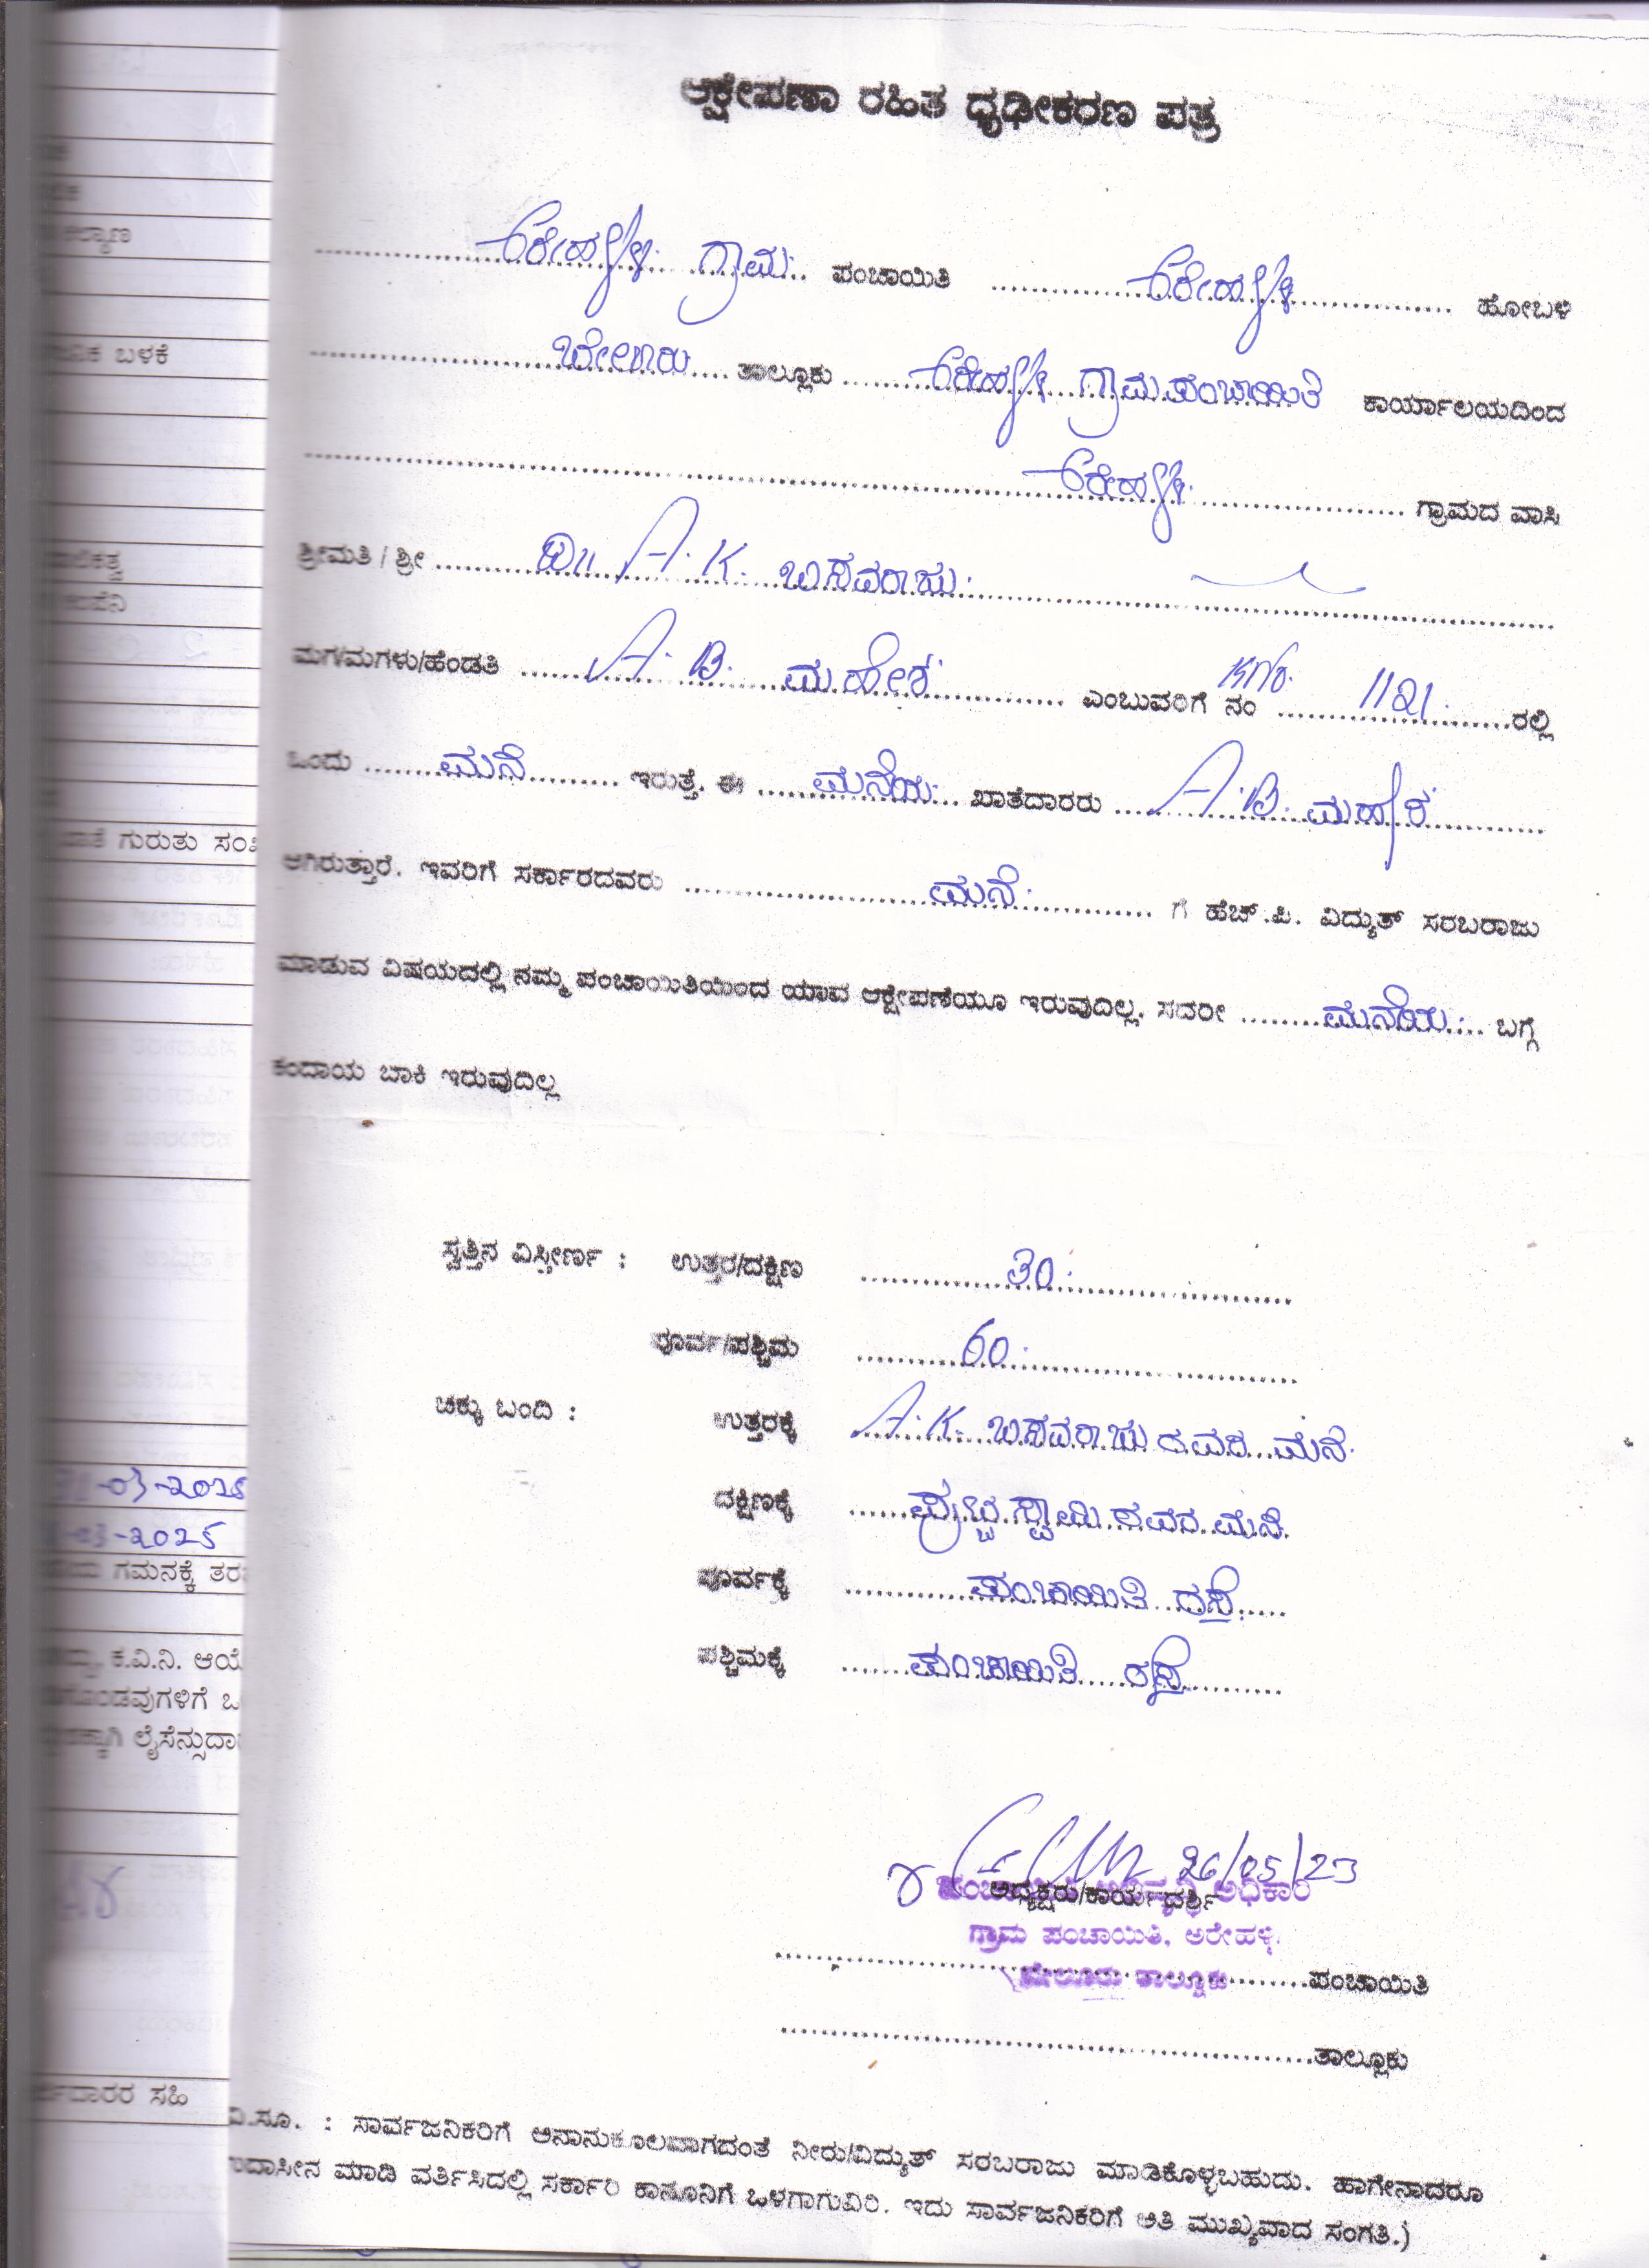 ಆಕ್ಷೇಪಣಾ ರಹಿತ ಧೃಢೀಕರಣ ಪತ್ರ
ಅರೇಹಳ್ಳಿ ಗ್ರಾಮ ಪಂಚಾಯಿತಿ ಅರೇಹಳ್ಳಿ ಹೋಬಳಿ
ಬೇಲೂರು ತಾಲ್ಲೂಕು ಅರೇಹಳ್ಳಿ ಗ್ರಾಮ ಪಂಚಾಯಿತಿ ಕಾರ್ಯಾಲಯದಿಂದ
ಅರೇಹಳ್ಳಿ ಗ್ರಾಮದ ವಾಸಿ
ಶ್ರೀಮತಿ / ಶ್ರೀ A.K. ಬಸವರಾಜು
ಮಗ/ಮಗಳು/ಹೆಂಡತಿ A.B. ಮಹೇಶ ಎಂಬುವರಿಗೆ ನಂ KNo. 1121 ರಲ್ಲಿ
ಒಂದು ಮನೆ ಇರುತ್ತೆ. ಈ ಮನೆಯ ಖಾತೆದಾರರು A.B. ಮಹೇಶ
ಆಗಿರುತ್ತಾರೆ. ಇವರಿಗೆ ಸರ್ಕಾರದವರು ಮನೆ ಗೆ ಹೆಚ್.ಪಿ. ವಿದ್ಯುತ್ ಸರಬರಾಜು
ಮಾಡುವ ವಿಷಯದಲ್ಲಿ ನಮ್ಮ ಪಂಚಾಯಿತಿಯಿಂದ ಯಾವ ಆಕ್ಷೇಪಣೆಯೂ ಇರುವುದಿಲ್ಲ. ಸದರೀ ಮನೆಯ ಬಗ್ಗೆ
ಕಂದಾಯ ಬಾಕಿ ಇರುವುದಿಲ್ಲ
ಸ್ವತ್ತಿನ ವಿಸ್ತೀರ್ಣ : ಉತ್ತರ/ದಕ್ಷಿಣ 30
ಪೂರ್ವ/ಪಶ್ಚಿಮ 60
ಚಕ್ಕು ಬಂದಿ : ಉತ್ತರಕ್ಕೆ A.K. ಬಸವರಾಜು ರವರ ಮನೆ
ದಕ್ಷಿಣಕ್ಕೆ ಪುಟ್ಟಸ್ವಾಮಿ ರವರ ಮನೆ
ಪೂರ್ವಕ್ಕೆ ಪಂಚಾಯಿತಿ ರಸ್ತೆ
ಪಶ್ಚಿಮಕ್ಕೆ ಪಂಚಾಯಿತಿ ರಸ್ತೆ
26/05/23
ಪಂಚಾಯಿತಿ ಅಭಿವೃದ್ಧಿ ಅಧಿಕಾರಿ
ಅಧ್ಯಕ್ಷರು/ಕಾರ್ಯದರ್ಶಿ
ಗ್ರಾಮ ಪಂಚಾಯಿತಿ, ಅರೇಹಳ್ಳಿ.
ಬೇಲೂರು ತಾಲ್ಲೂಕು
ಪಂಚಾಯಿತಿ
ತಾಲ್ಲೂಕು
ವಿ.ಸೂ. : ಸಾರ್ವಜನಿಕರಿಗೆ ಅನಾನುಕೂಲವಾಗದಂತೆ ನೀರು/ವಿದ್ಯುತ್ ಸರಬರಾಜು ಮಾಡಿಕೊಳ್ಳಬಹುದು. ಹಾಗೇನಾದರೂ
ಉದಾಸೀನ ಮಾಡಿ ವರ್ತಿಸಿದಲ್ಲಿ ಸರ್ಕಾರಿ ಕಾನೂನಿಗೆ ಒಳಗಾಗುವಿರಿ. ಇದು ಸಾರ್ವಜನಿಕರಿಗೆ ಅತಿ ಮುಖ್ಯವಾದ ಸಂಗತಿ.)
ಬಳಕೆ
ಗುರುತು
-03-2025
-03-2025
ಗಮನಕ್ಕೆ
ಕ.ವಿ.ನಿ.
ಸಹಿ